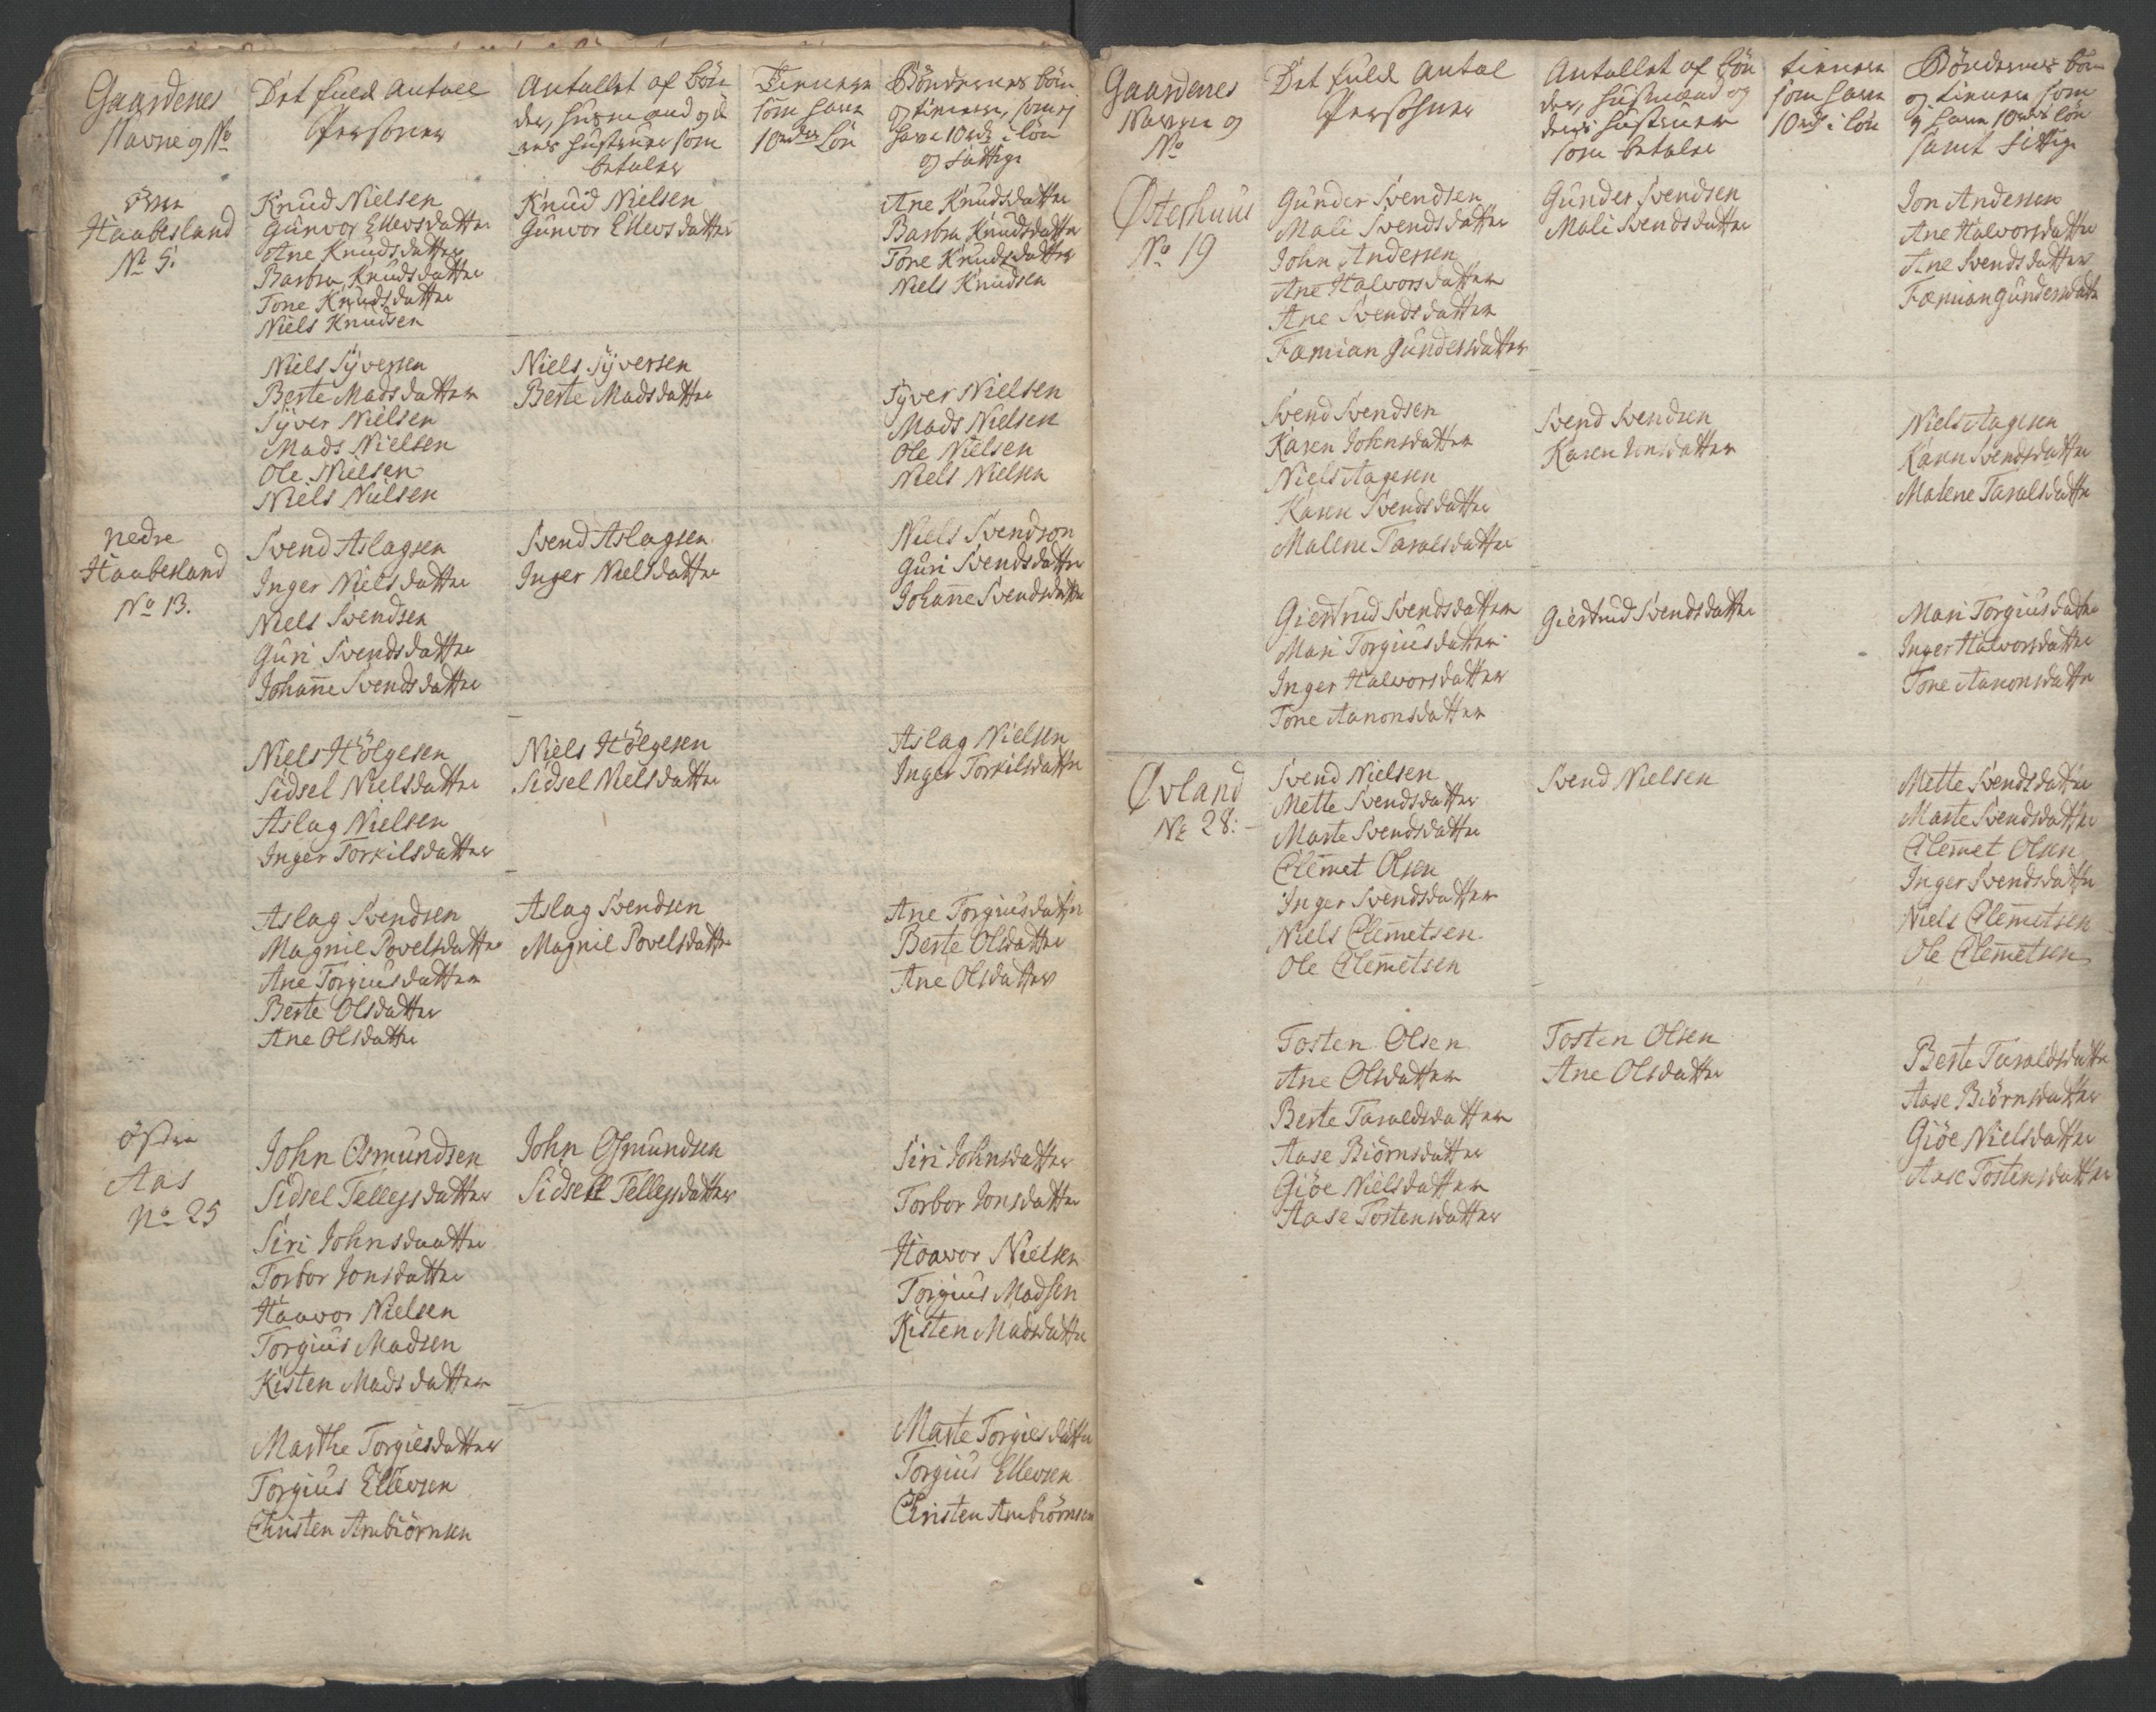 Gaardenes
Navne og No
Det fuld Antall
Personer
Antallet af bön
der, husmænd og de
res hustruer som
betaler
Tienere
som have
10 rdr Lön
Böndernes börn
og tienere, som ej
have 10 rdr i lön
og fattige
övre
Haabesland
No 5.
Knud Nielsen
Gunvor Ellevsdatter
Ane Knudsdatter
Barbra Knudsdatter
Tone Knudsdatter
Niels Knudsen
Knud Nielsen
Gunvor Ellevsdatter
Ane Knudsdatter
Barbra Knudsdatter
Tone Knudsdatter
Niels Knudsen
Niels Syversen
Berte Madsdatter
Syver Nielsen
Mads Nielsen
Ole Nielsen
Niels Nielsen
Niels Syversen
Berte Madsdatter
Syver Nielsen
Mads Nielsen
Ole Nielsen
Niels Nielsen
nedre
Haabesland
No 13.
Svend Aslagsen
Inger Nielsdatter
Niels Svendsen
Guri Svendsdatter
Johanne Svendsdatter
Svend Aslagsen
Inger Nielsdatter
Niels Svendson
Guri Svendsdatter
Johanne Svendsdatter
Niels Hölgesen
Sidsel Nielsdatter
Aslag Nielsen
Inger Torkilsdatter
Niels Hölgesen
Sidsel Nielsdatter
Aslag Nielsen
Inger Torkilsdatter
Aslag Svendsen
Magnil Povelsdatter
Ane Torgiusdatter
Berte Olsdatter
Ane Olsdatter
Aslag Svendsen
Magnil Povelsdatter
Ane Torgiusdatter
Berte Olsdatter
Ane Olsdatter
östre
Aas
No 25
John Osmundsen
Sidsel Tellefsdatter
Siri Johnsdaatter
Torbor Jonsdatter
Haavor Nielsen
Torgius Madsen
Kisten Madsdatter
John Osmundsen
Sidsell Tellefsdatter
Siri Johnsdatter
Torbor Jonsdatter
Haavor Nielsen
Torgius Madsen
Kisten Madsdatter
Marthe Torgiesdatter
Torgius Ellevsen
Christen Ambiörnsen
Marte Torgiesdatter
Torgius Ellevsen
Christen Ambiörnsen
Gaardenes
Navne og
No
Det fuld Antal
Persohner
Antallet af bön
der, husmænd og
deris hustruer
som betaler
tienere
som have
10 rdr i lön
Böndernes börn
og tienere som
ej have 10 rdr lön
samt fattige
Østerhuus
No 19
Gunder Svendsen
Mali Svendsdatter
John Andersen
Ane Halvorsdatter
Ane Svendsdatter
Fæmian Gundersdatter
Gunder Svendsen
Mali Svendsdatter
Jon Andersen
Ane Halvorsdatter
Ane Svendsdatter
Fæmian Gundersdatter
Svend Svendsen
Karen Johnsdatter
Niels Aagesen
Karen Svendsdatter
Malene Taralsdatter
Svend Svendsen
Karen Jonsdatter
Niels Aagesen
Karen Svendsdatter
Malene Taralsdatter
Giertrud Svendsdatter
Mari Torgiusdatter
Inger Halvorsdatter
Tone Aanonsdatter
Giertrud Svendsdatter
Mari Torgiusdatter
Inger Halvorsdatter
Tone Aanonsdatter
Øvland
No 28:
Svend Nielsen
Mette Svendsdatter
Marte Svendsdatter
Clemet Olsen
Inger Svendsdatter
Niels Clemetsen
Ole Clemetsen
Svend Nielsen
Mette Svendsdatter
Marte Svendsdatter
Clemet Olsen
Inger Svendsdatter
Niels Clemetsen
Ole Clemetsen
Tosten Olsen
Ane Olsdatter
Berte Taraldsdatter
Aase Biörnsdatter
Giöe Nielsdatter
Aase Tostensdatter
Tosten Olsen
Ane Olsdatter
Berte Taraldsdatter
Aase Biörnsdatter
Giöe Nielsdatter
Aase Tostensdatter